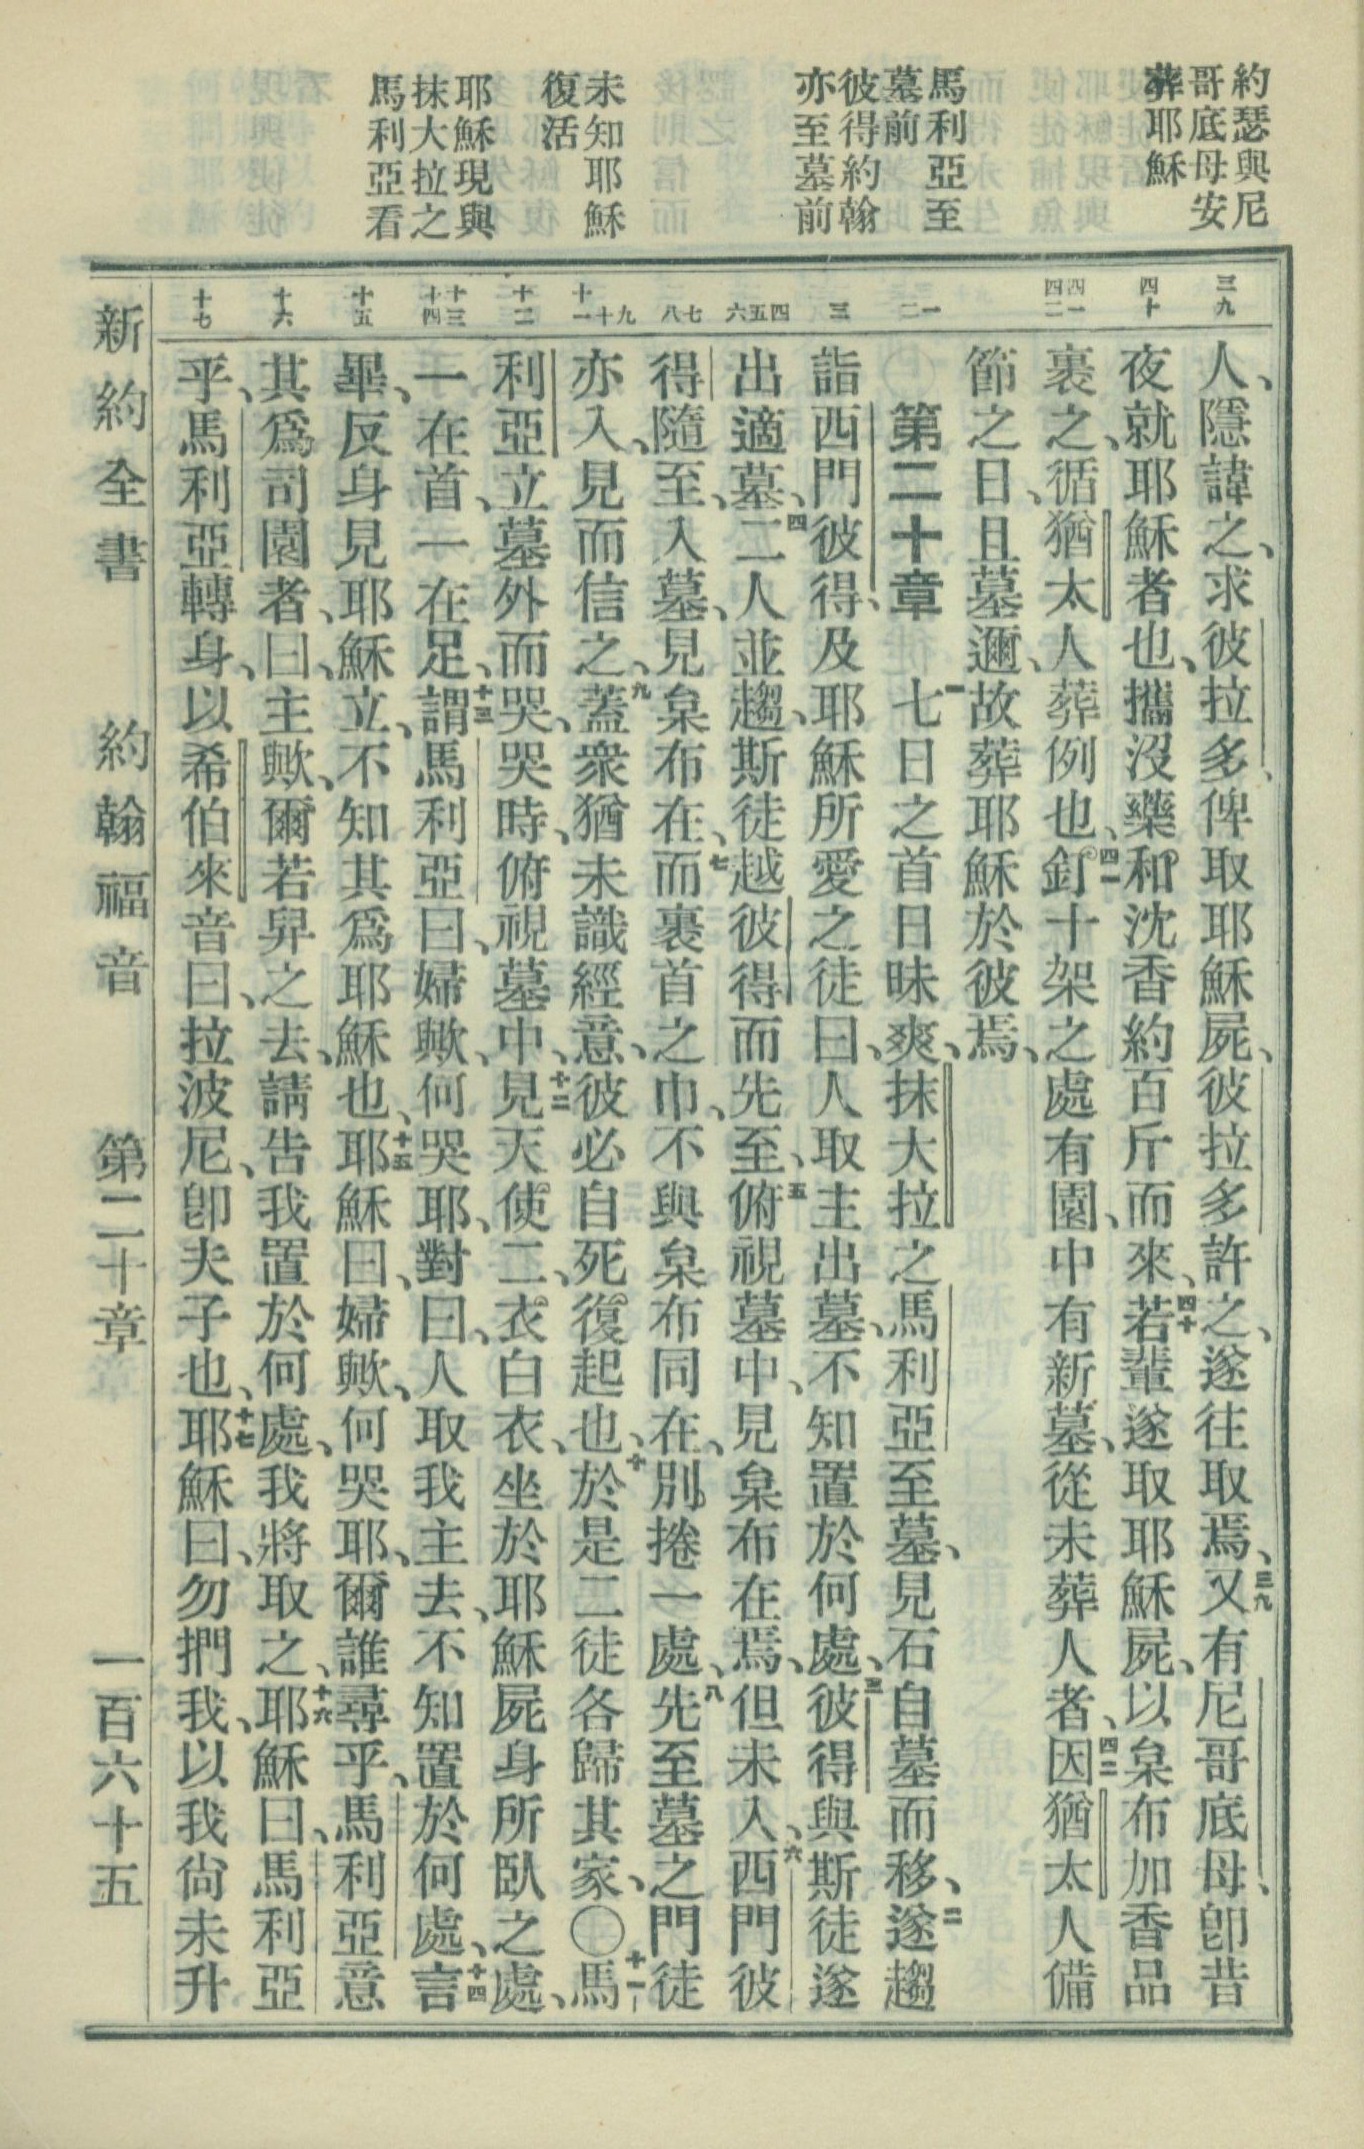 約瑟與尼
哥底母安
葬耶穌
馬利亞至
墓前
彼得約翰
亦至墓前
未知耶穌
復活
耶穌現與
抹大拉之
馬利亞看
三九
四十
四一
四二
一
二
三
四
五
六
七
八
九
十
十一
十二
十三
十四
十五
十六
十七
人、隱諱之、求彼拉多、俾取耶穌屍、彼拉多許之、遂往取焉、三九又有尼哥底母、卽昔
夜就耶穌者也、攜沒藥和沈香約百斤而來、四十若輩遂取耶穌屍、以枲布加香品
裹之、循猶太人葬例也、四一釘十架之處有園、中有新墓、從未葬人者、四二因猶太人備
節之日、且墓邇、故葬耶穌於彼焉、
〇第二十章 一七日之首日昧爽、抹大拉之馬利亞至墓、見石自墓而移、二遂趨
詣西門彼得、及耶穌所愛之徒曰、人取主出墓、不知置於何處、三彼得與斯徒遂
出適墓、四二人並趨、斯徒越彼得而先至、五俯視墓中、見枲布在焉、但未入、六西門彼
得隨至、入墓、見枲布在、七而裹首之巾、不與枲布同在、別捲一處、八先至墓之門徒
亦入、見而信之、九蓋衆猶未識經意、彼必自死復起也、十於是二徒各歸其家、〇十一馬
利亞立墓外而哭、哭時、俯視墓中、十二見天使二、衣白衣、坐於耶穌屍身所臥之處、
一在首、一在足、十三謂馬利亞曰、婦歟、何哭耶、對曰、人取我主去、不知置於何處、十四言
畢、反身見耶穌立、不知其爲耶穌也、十五耶穌曰、婦歟、何哭耶、爾誰尋乎、馬利亞意
其爲司園者、曰、主歟、爾若舁之去、請告我置於何處、我將取之、十六耶穌曰、馬利亞
乎、馬利亞轉身、以希伯來音曰、拉波尼、卽夫子也、十七耶穌曰、勿捫我、以我尙未升
新約全書 約翰福音 第二十章 一百六十五